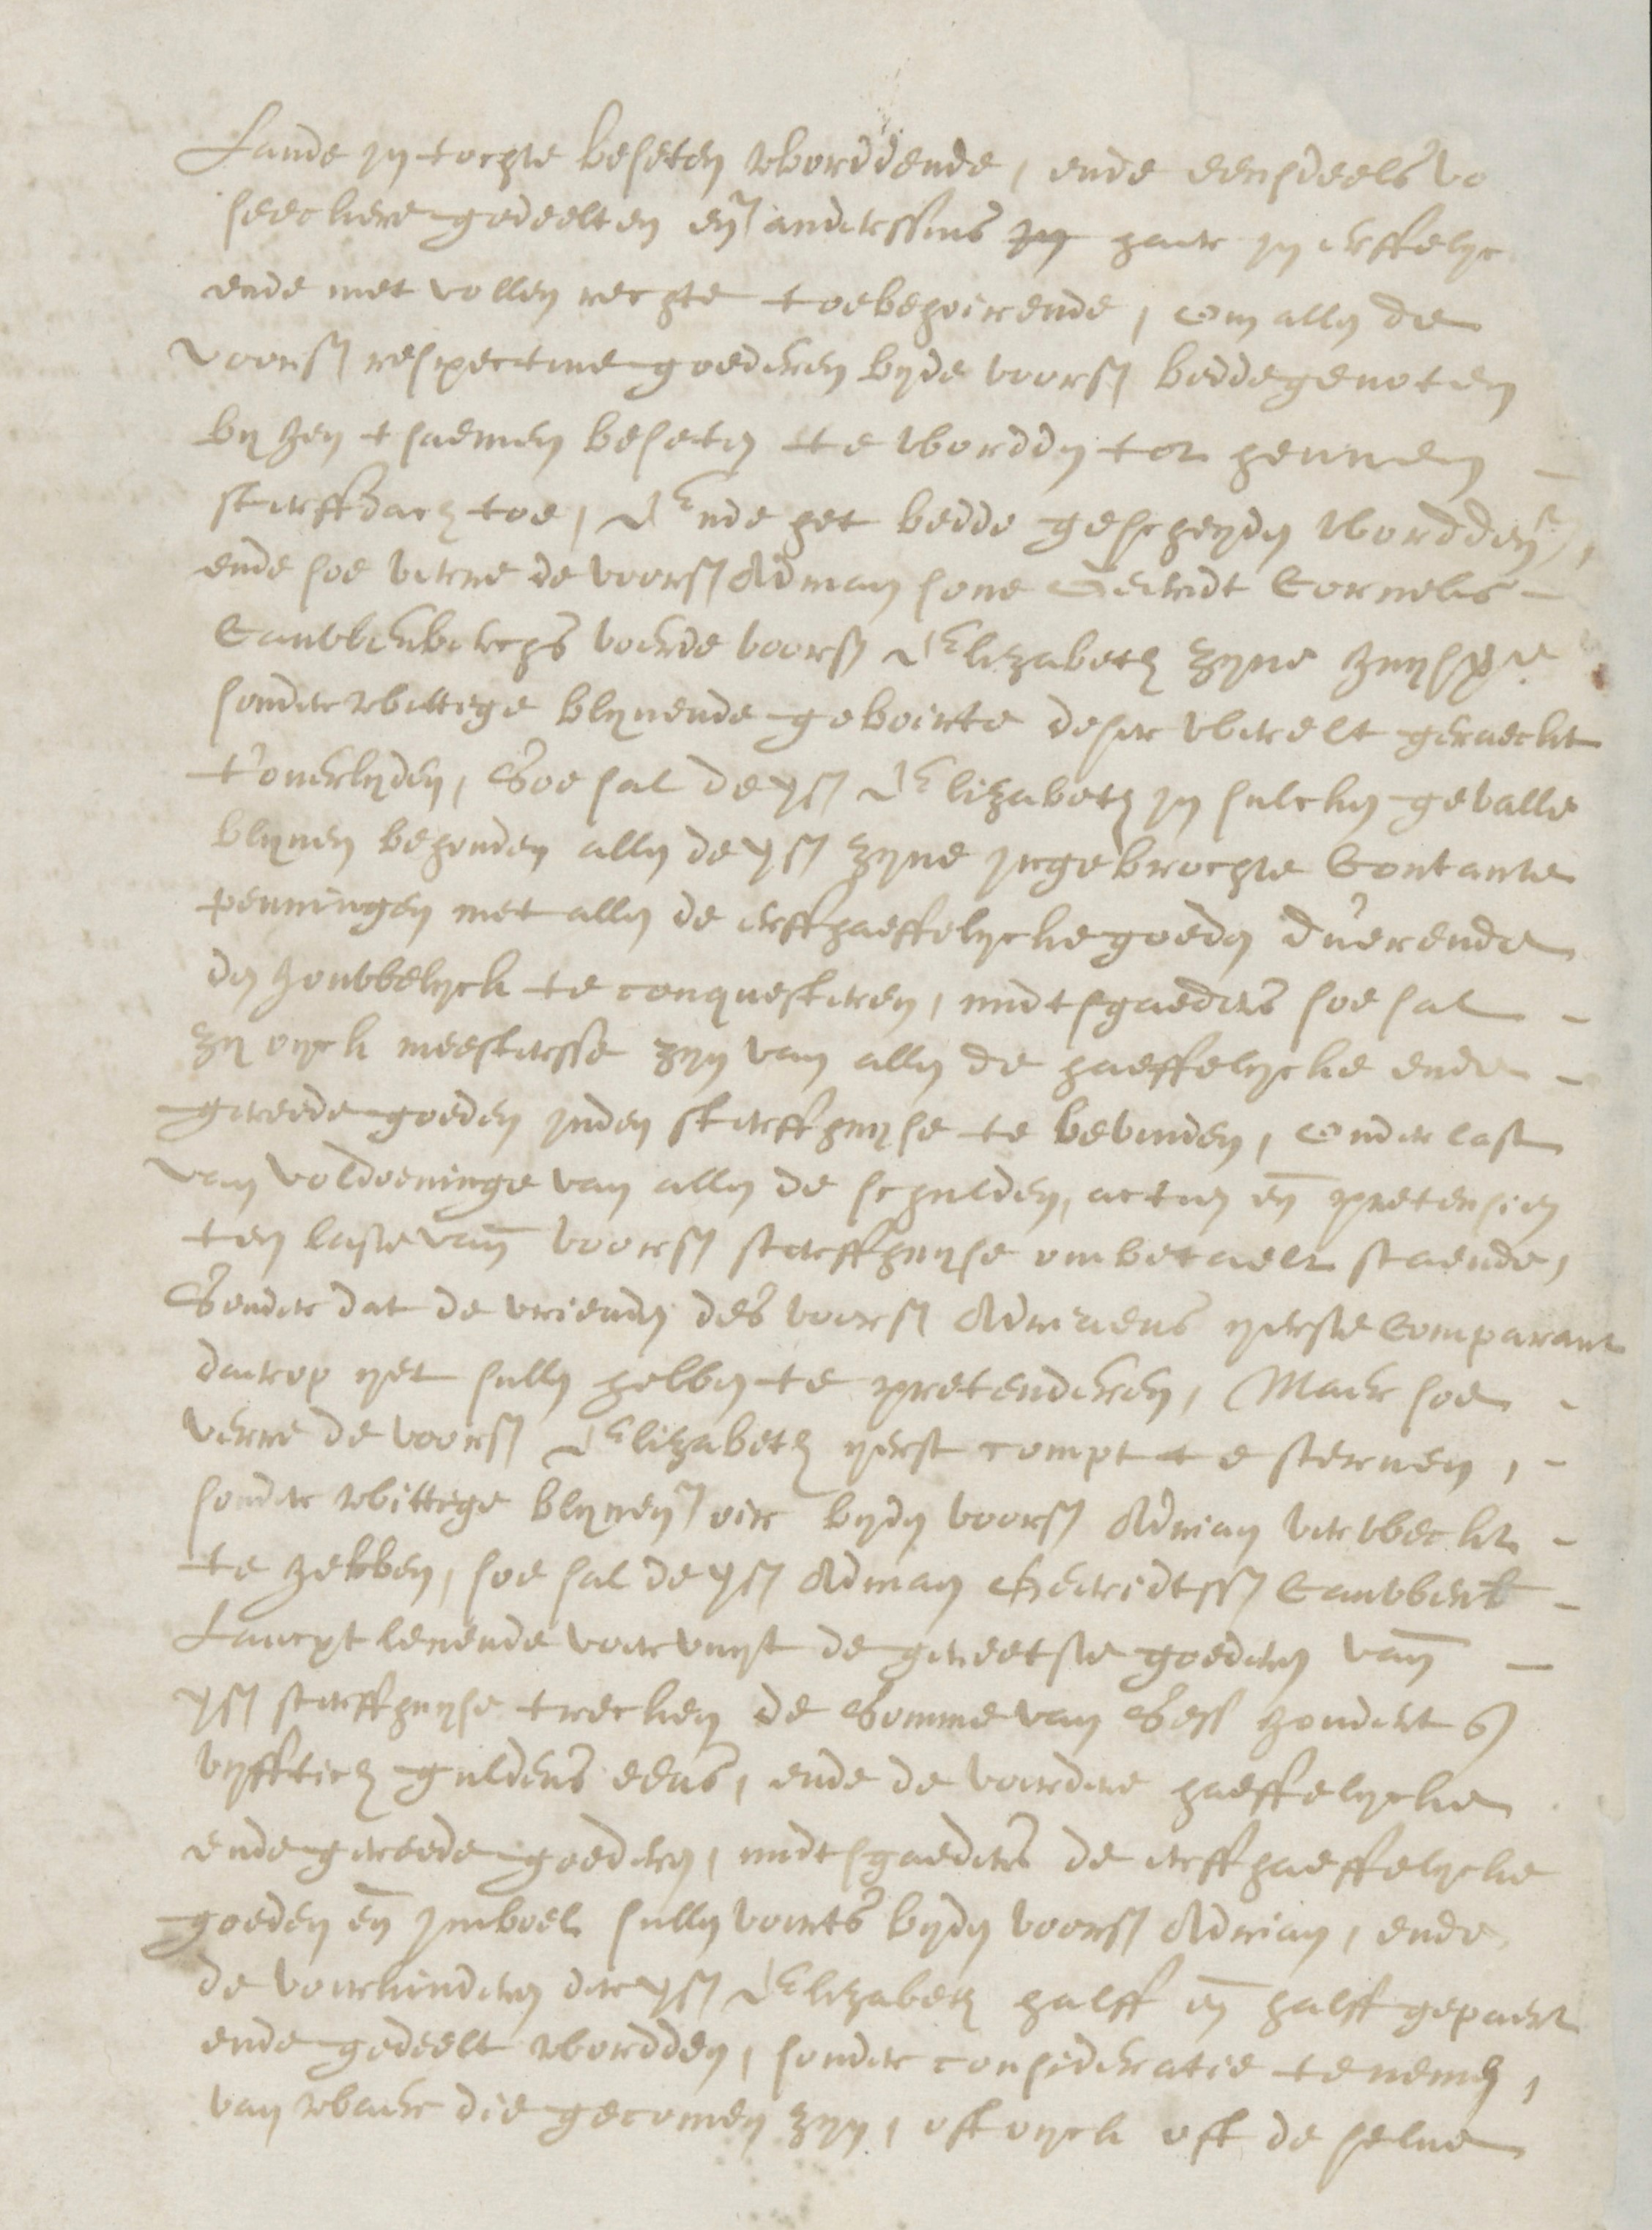 Lande in tochte beseten worddende, ende eensdeels vo
seeckere gedeelten en̄ anderssins in haer in erffelyc
ende met vollen rechte toebehoirende, om allen de
voors. respective goederen byde voors. beddegenoten
by hen tsaemen beseten te wordden tot hennen -
sterffdach toe, Ende het bedde gescheyden wordden,
ende soe verre de voors. Adriaen sone Geeridt Cornelis -
voer de voors. Elizabeth zyne huysvr.
sonder wittige blyvende geboirte deser werelt geraeckt
t'overlyden, Soe sal de ys. Elizabeth in sulcken gevalle
blyven behouden allen de ys. zyne ingebrochte Contante
penningen met allen de erffhaeffelycke goeden duerende
den houwelyck te conquesteren, midtsgaeders soe sal -
zy oyck meestersse zyn van allen de haeffelycke ende -
gereede goeden inden sterffhuyse te bevinden, onder last
van voldoeninge van allen de schulden, actien en̄ pretensien
ten laste van̄ voors. sterffhuyse ombetaelt staende,
Sonder dat de vrienden des voors. Adriaens yerste Comparant
daerop yet sullen hebben te pretenderen, Maer soe -
verre de voors. Elizabeth yerst compt te sterven, -
sonder wittige blyven̄ oir byden voors. Adriaen verweckt -
te hebben, soe sal de ys. Adriaen Geeridtss. -
Lancxt levende voer vuyt de gereetste goederen van̄ -
ys. sterffhuyse trecken de Somme van Sess hondert en̄
vyfftich guldens eens, ende de voerdere haeffelycke
ende gereede goederen, midtsgaeders de erffhaeffelycke
goeden en̄ imboel sullen voirts byden voors. Adriaen, ende
de voirkinderen der ys. Elizabeth halff en̄ halff gepaert
ende gedeelt wordden, sonder consideratie te nemen,
van waer die gecomen zyn, oft oyck oft de selve